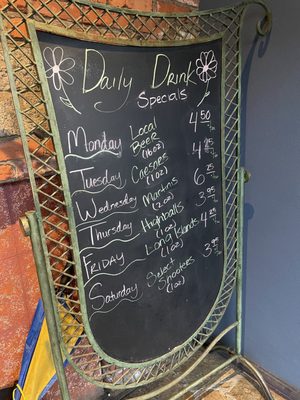 Daily Drink
Specials
Monday Local Beer (16oz) 4.50
Tuesday Caesars (1oz) 4.25
Wednesday Martinis (2oz) 6.25
Thursday Highballs (1oz) 3.95
Friday Long Islands (1oz) 4.25
Saturday Select Shooters (1oz) 3.95